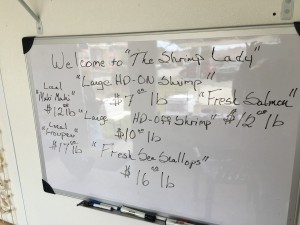 Welcome to "The Shrimp Lady"
"Large HD-ON Shrimp"
$7.00 lb
Local
"Mahi Mahi"
$12.00 lb
"Fresh Salmon"
$12.00 lb
"Large HD-Off Shrimp"
$10.00 lb
"Local
Grouper"
$17.00 lb
"Fresh Sea Scallops"
$16.00 lb